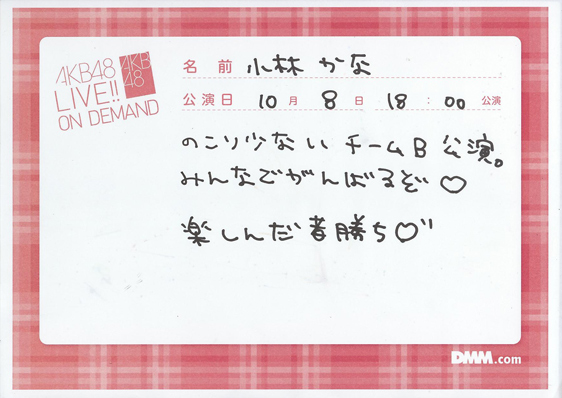 AKB48
LIVE!!
ON DEMAND
AKB
48
名 前 小林 かな
公演日 10 月 8 日 18 : 00 公演
のこり少ない チームB 公演。
みんなでがんばるぞ♡
楽しんだ者勝ち♡"
DMM.com